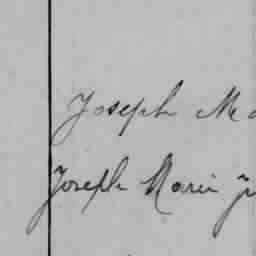 Joseph
Joseph Marin